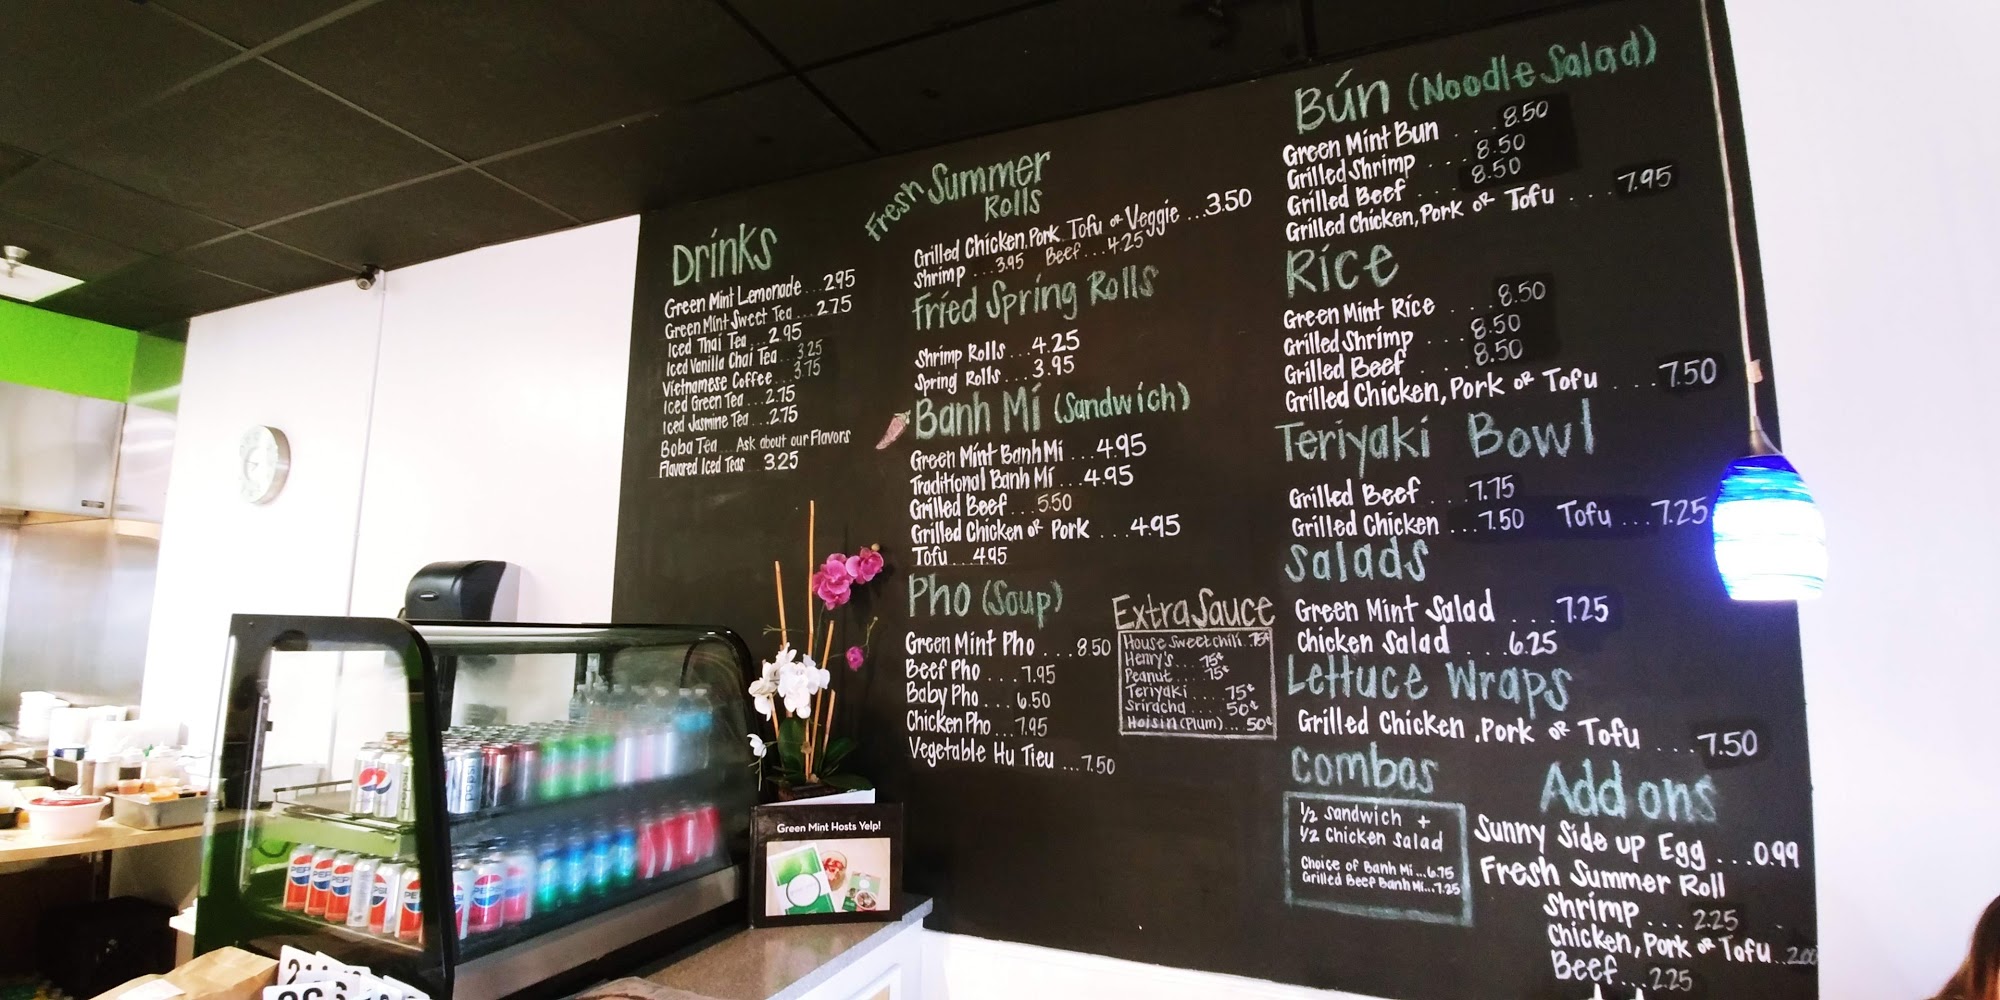 Drinks
Green Mint Lemonade...2.95
Green Mint Sweet Tea...2.75
Iced Thai Tea...2.95
Iced Vanilla Chai Tea...3.25
Vietnamese Coffee...3.75
Iced Green Tea...2.75
Iced Jasmine Tea...2.75
Boba Tea...Ask about our Flavors
Flavored Iced Teas 3.25
Fresh Summer
Rolls
Grilled Chicken, Pork, Tofu or Veggie...3.50
Shrimp...3.95 Beef...4.25
Fried Spring Rolls
Shrimp Rolls...4.25
Spring Rolls...3.95
Banh Mí (Sandwich)
Green Mint Banh Mi...4.95
Traditional Banh Mí...4.95
Grilled Beef...5.50
Grilled Chicken or Pork...4.95
Tofu...4.95
Pho (Soup)
Green Mint Pho...8.50
Beef Pho...7.95
Baby Pho...6.50
Chicken Pho...7.95
Vegetable Hu Tieu...7.50
Extra Sauce
House Sweet chili.75¢
Henry's...75¢
Peanut...75¢
Teriyaki....75¢
Sriracha....50¢
Hoisin (Plum)...50¢
Bún (Noodle Salad)
Green Mint Bun....8.50
Grilled Shrimp....8.50
Grilled Beef....8.50
Grilled Chicken, Pork or Tofu...7.95
Rice
Green Mint Rice....8.50
Grilled Shrimp....8.50
Grilled Beef....8.50
Grilled Chicken, Pork or Tofu....7.50
Teriyaki Bowl
Grilled Beef...7.75
Grilled Chicken...7.50 Tofu...7.25
Salads
Green Mint Salad....7.25
Chicken Salad....6.25
Lettuce Wraps
Grilled Chicken, Pork or Tofu...7.50
Combos
1/2 Sandwich +
1/2 Chicken Salad
Choice of Banh Mi...6.75
Grilled Beef Banh Mi...7.25
Add ons
Sunny Side up Egg...0.99
Fresh Summer Roll
Shrimp...2.25
Chicken, Pork or Tofu..2.00
Beef...2.25
Green Mint Hosts Yelp!
PEPSI
PEPSI
PEPSI
PEPSI
PEPSI
PEPSI
pepsi
pepsi